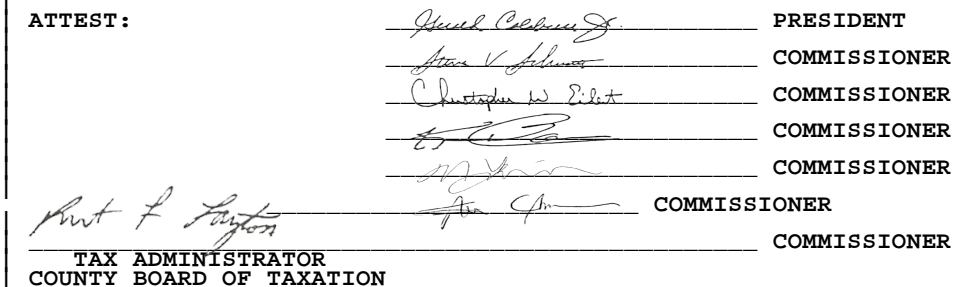 ATTEST: PRESIDENT
Steve V COMMISSIONER
Christopher W Eilert COMMISSIONER
COMMISSIONER
COMMISSIONER
COMMISSIONER
COMMISSIONER
TAX ADMINISTRATOR
COUNTY BOARD OF TAXATION